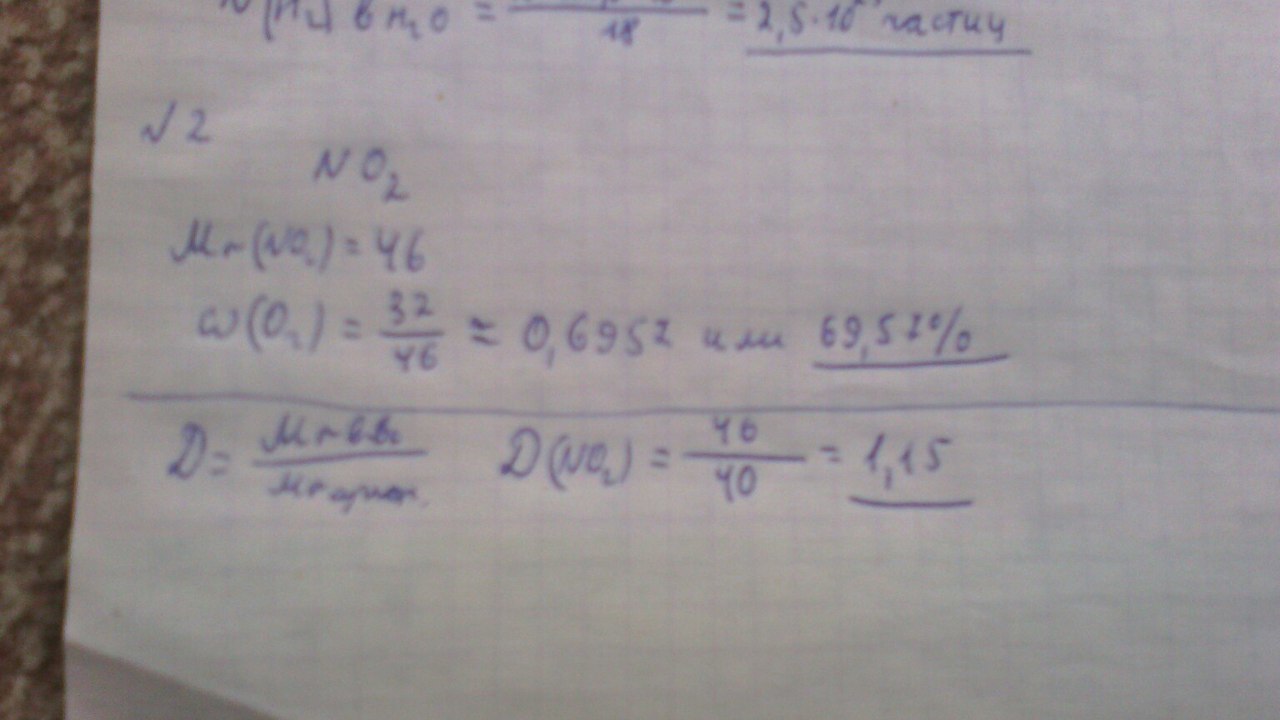 N(H₂) в H₂O = /18 = 2,5·10 частиц
√2
NO₂
Mr(NO₂) = 46
ω(O₂) = 32/46 ≈ 0,6952 или 69,52%
D = Mr в-ва/Mr аргон. D(NO₂) = 46/40 = 1,15